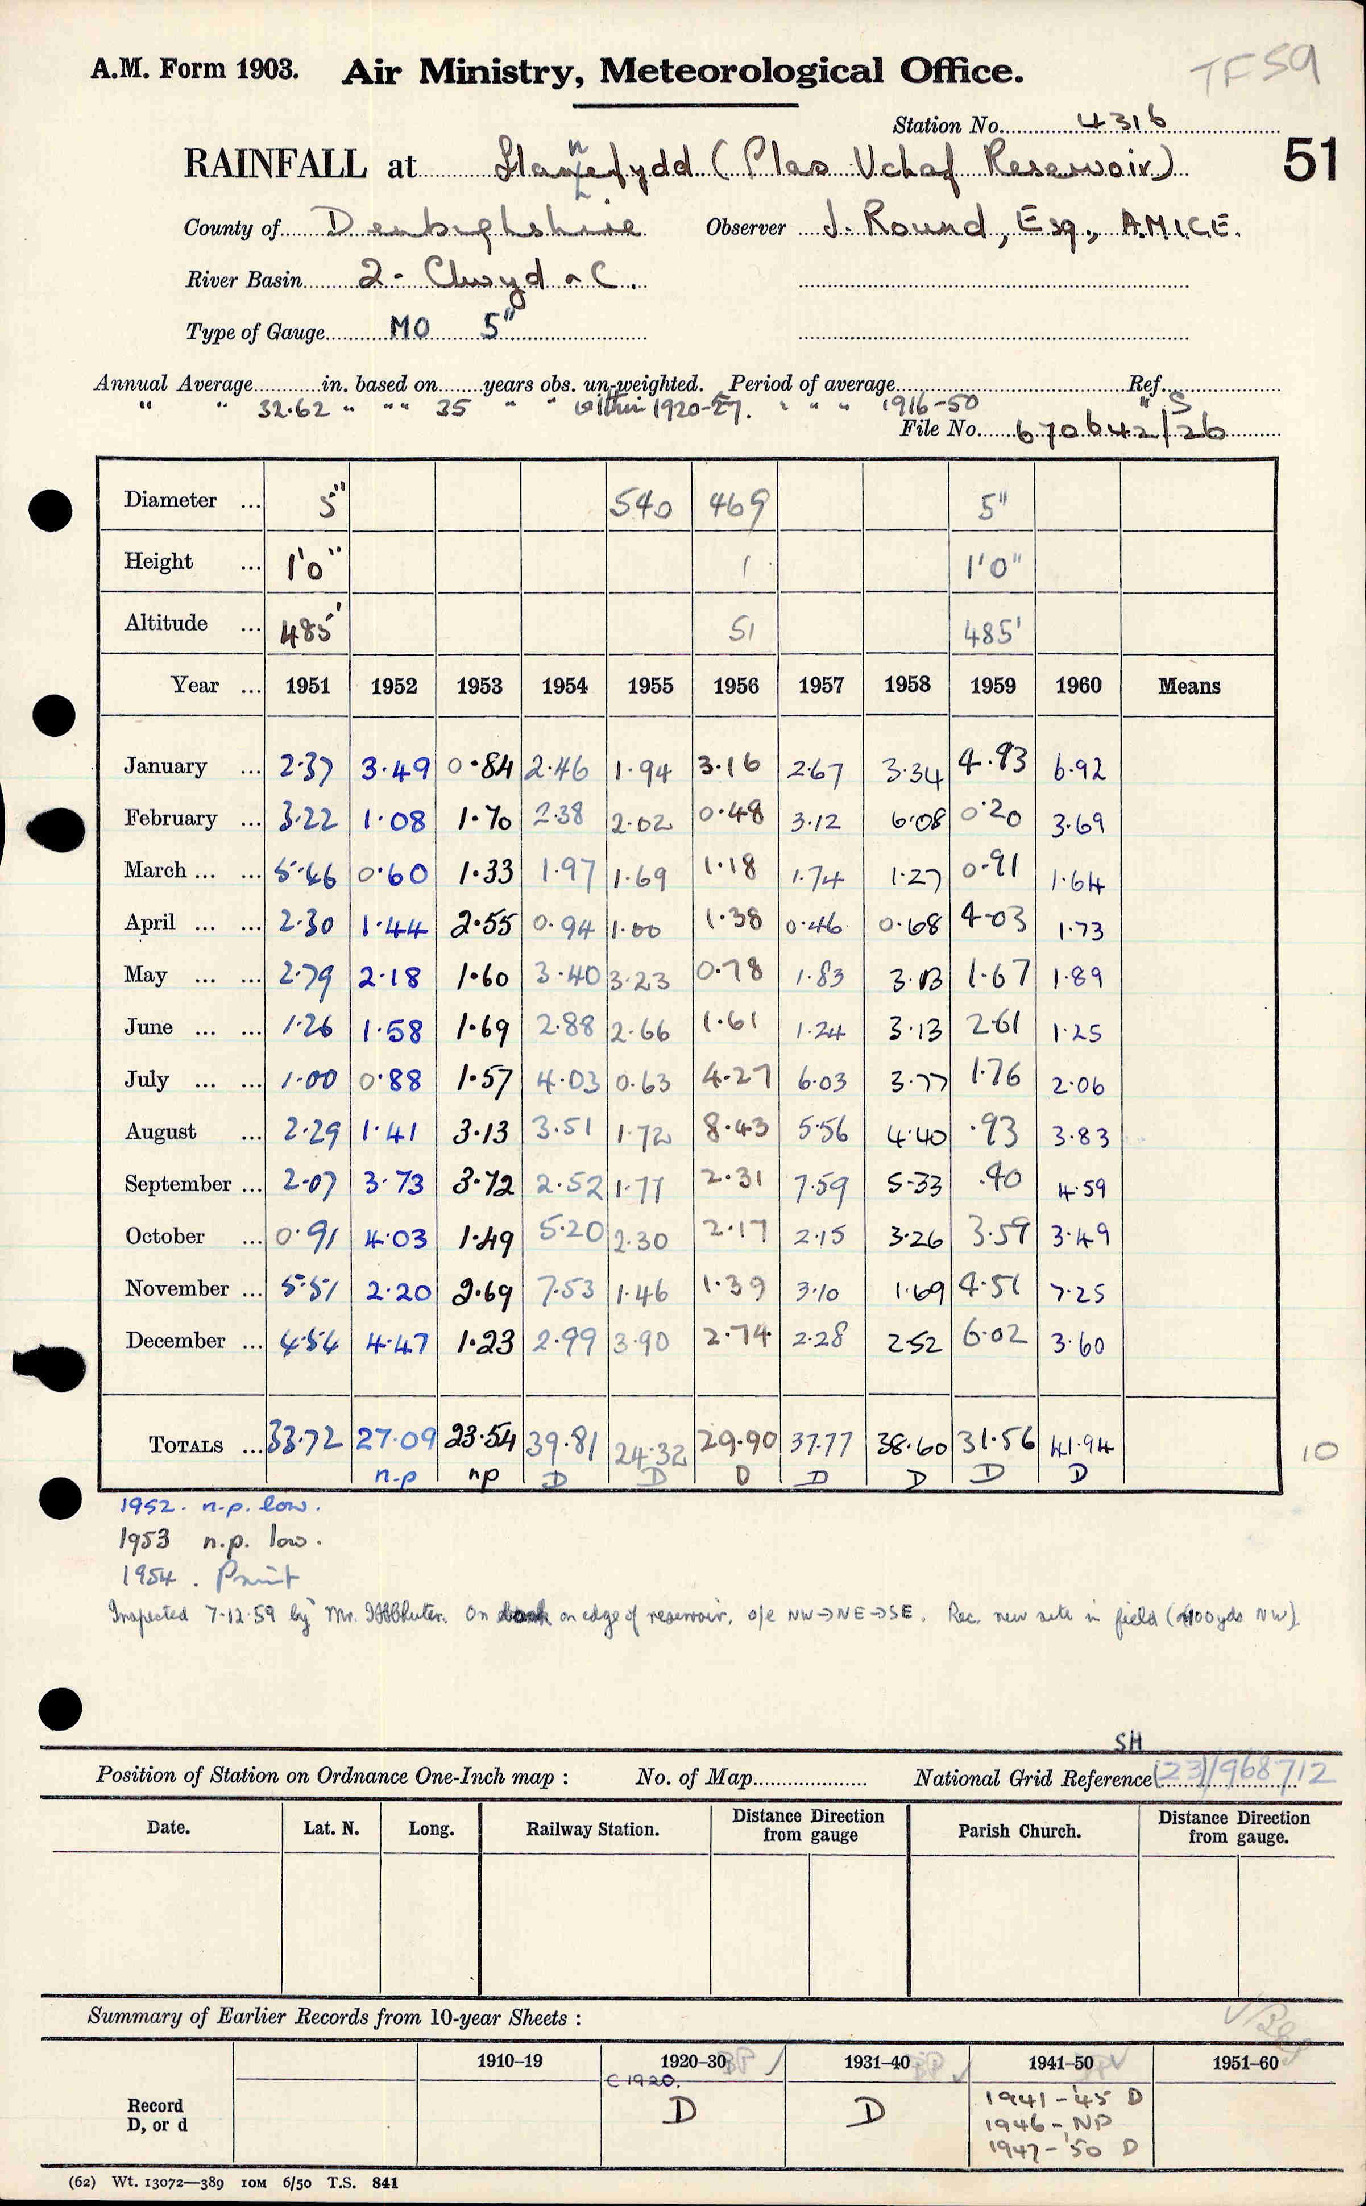 TF59
A.M. Form 1903. Air Ministry, Meteorological Office.
Station No. 4316
51
RAINFALL at Llannefydd (Plas Uchaf Reservoir)
County of Denbighshire Observer J. Round, Esq., A.M.I.C.E.
River Basin 2 - Clwyd & C.
Type of Gauge MO 5"
Annual Average in. based on years obs. un-weighted. Period of average Ref.
" " 32.62 " " " 35 " " within 1920-57. " " " 1916-50 " S
File No. 670642/26
Diameter ... 5" 540 469 5"
Height ... 1'0" 1 1'0"
Altitude ... 485' 51 485'
Year ... 1951 1952 1953 1954 1955 1956 1957 1958 1959 1960 Means
January ... 2.37 3.49 0.84 2.46 1.94 3.16 2.67 3.34 4.93 6.92
February ... 3.22 1.08 1.70 2.38 2.02 0.48 3.12 6.08 0.20 3.69
March ... ... 5.46 0.60 1.33 1.97 1.69 1.18 1.74 1.27 0.91 1.64
April ... ... 2.30 1.44 2.55 0.94 1.00 1.38 0.46 0.68 4.03 1.73
May ... ... 2.79 2.18 1.60 3.40 3.23 0.78 1.83 3.13 1.67 1.89
June ... ... 1.26 1.58 1.69 2.88 2.66 1.61 1.24 3.13 2.61 1.25
July ... ... 1.00 0.88 1.57 4.03 0.63 4.27 6.03 3.77 1.76 2.06
August ... 2.29 1.41 3.13 3.51 1.72 8.43 5.56 4.40 .93 3.83
September ... 2.07 3.73 3.72 2.52 1.77 2.31 7.59 5.33 .40 4.59
October ... 0.91 4.03 1.49 5.20 2.30 2.17 2.15 3.26 3.59 3.49
November ... 5.51 2.20 2.69 7.53 1.46 1.39 3.10 1.69 4.51 7.25
December ... 4.54 4.47 1.23 2.99 3.90 2.74 2.28 2.52 6.02 3.60
TOTALS ... 33.72 27.09 23.54 39.81 24.32 29.90 37.77 38.60 31.56 41.94 10
n-p np D D D D D D D
1952. n.p. low.
1953 n.p. low.
1954. Print
Inspected 7-12-59 by Mr. on edge of reservoir, o/e NW→NE→SE. Rec. new site in field (400yds NW).
SH
Position of Station on Ordnance One-Inch map : No. of Map National Grid Reference (23)/968712
Date. Lat. N. Long. Railway Station. Distance Direction from gauge Parish Church. Distance Direction from gauge.
Summary of Earlier Records from 10-year Sheets :
1910-19 1920-30 1931-40 1941-50 1951-60
C 1920.
Record D, or d D D 1941-'45 D
1946-NP
1947-'50 D
(62) Wt. 13072—389 10M 6/50 T.S. 841